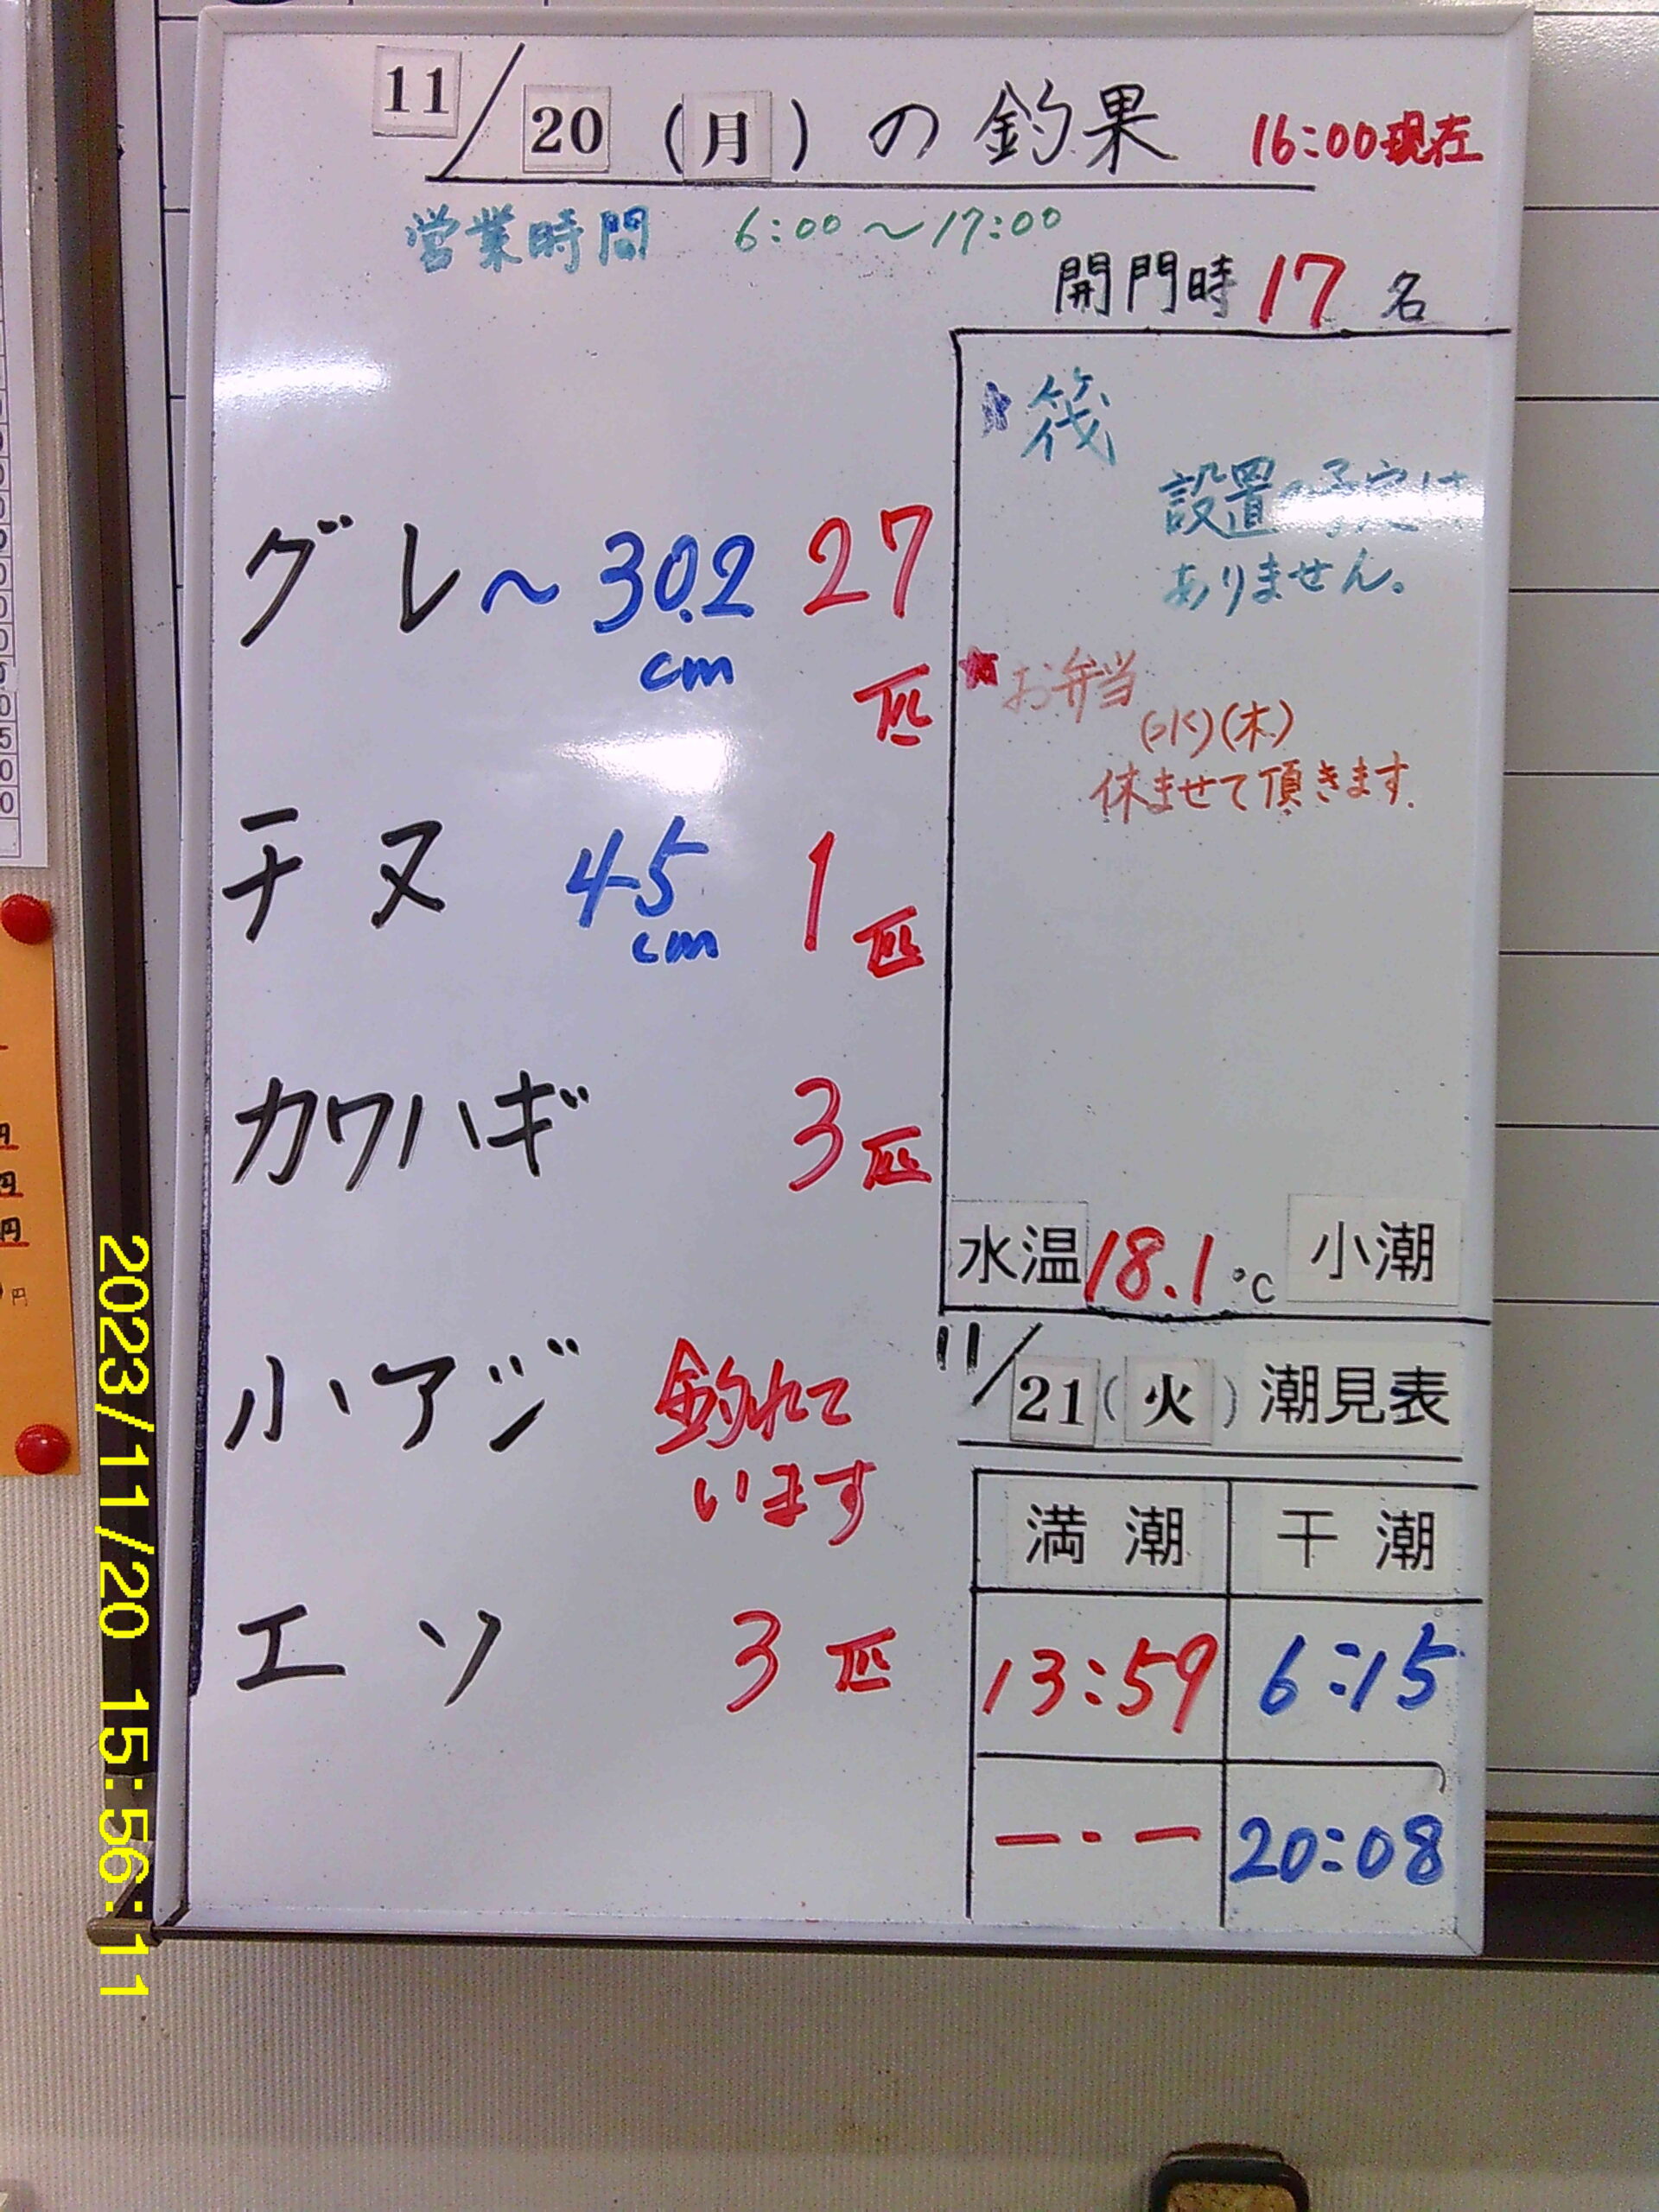 11/20(月)の釣果 16:00現在
営業時間 6:00〜17:00
開門時 17 名
★筏
設置の予定は
ありません。
★お弁当
(水)(木)
休ませて頂きます.
グレ〜30.2cm 27匹
チヌ 45cm 1匹
カワハギ 3匹
小アジ 釣れて
います
エソ 3匹
水温18.1℃ 小潮
11/21(火)潮見表
満潮 干潮
13:59 6:15
ー・ー 20:08
2023/11/20 15:56:11
円
円
円
円